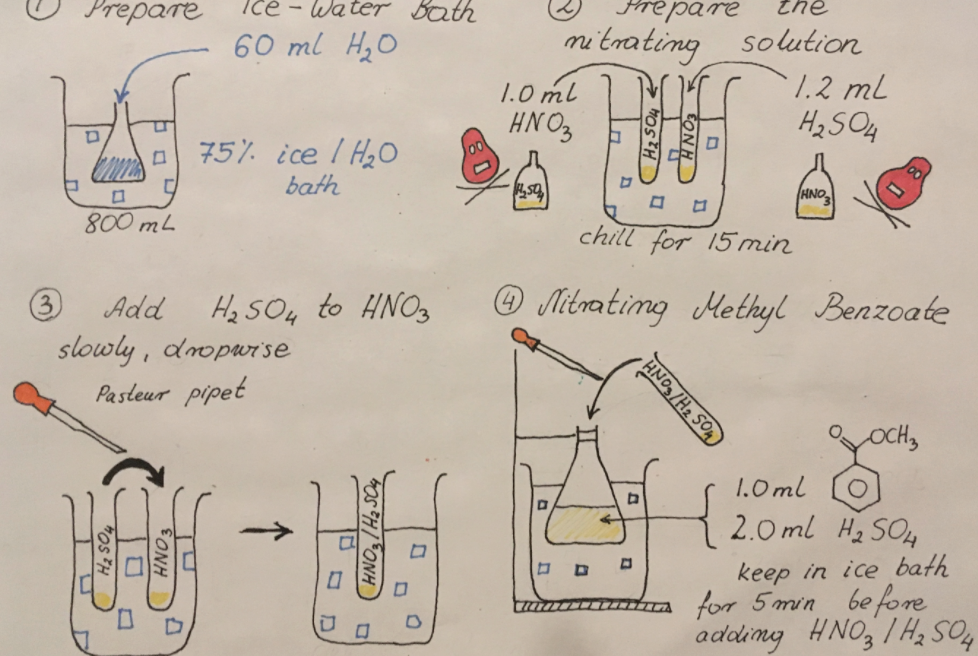 ① Prepare Ice-Water Bath
60 ml H₂O
75% ice / H₂O
bath
800 mL
② Prepare the
nitrating solution
1.0 ml
HNO₃
H₂SO₄
H₂SO₄
HNO₃
1.2 mL
H₂SO₄
HNO₃
chill for 15 min
③ Add H₂SO₄ to HNO₃
slowly, dropwise
Pasteur pipet
H₂SO₄
HNO₃
HNO₃/H₂SO₄
④ Nitrating Methyl Benzoate
HNO₃/H₂SO₄
O
OCH₃
1.0 ml
2.0 ml H₂SO₄
keep in ice bath
for 5 min before
adding HNO₃ / H₂SO₄